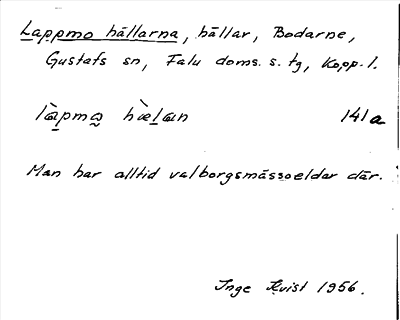 Lappmo hällarna, hällar, Bodarne,
Gustafs sn, Falu doms. s. tg, Kopp. l.
141a
Man har alltid valborgsmässoeldar där.
Inge Kvist 1956.